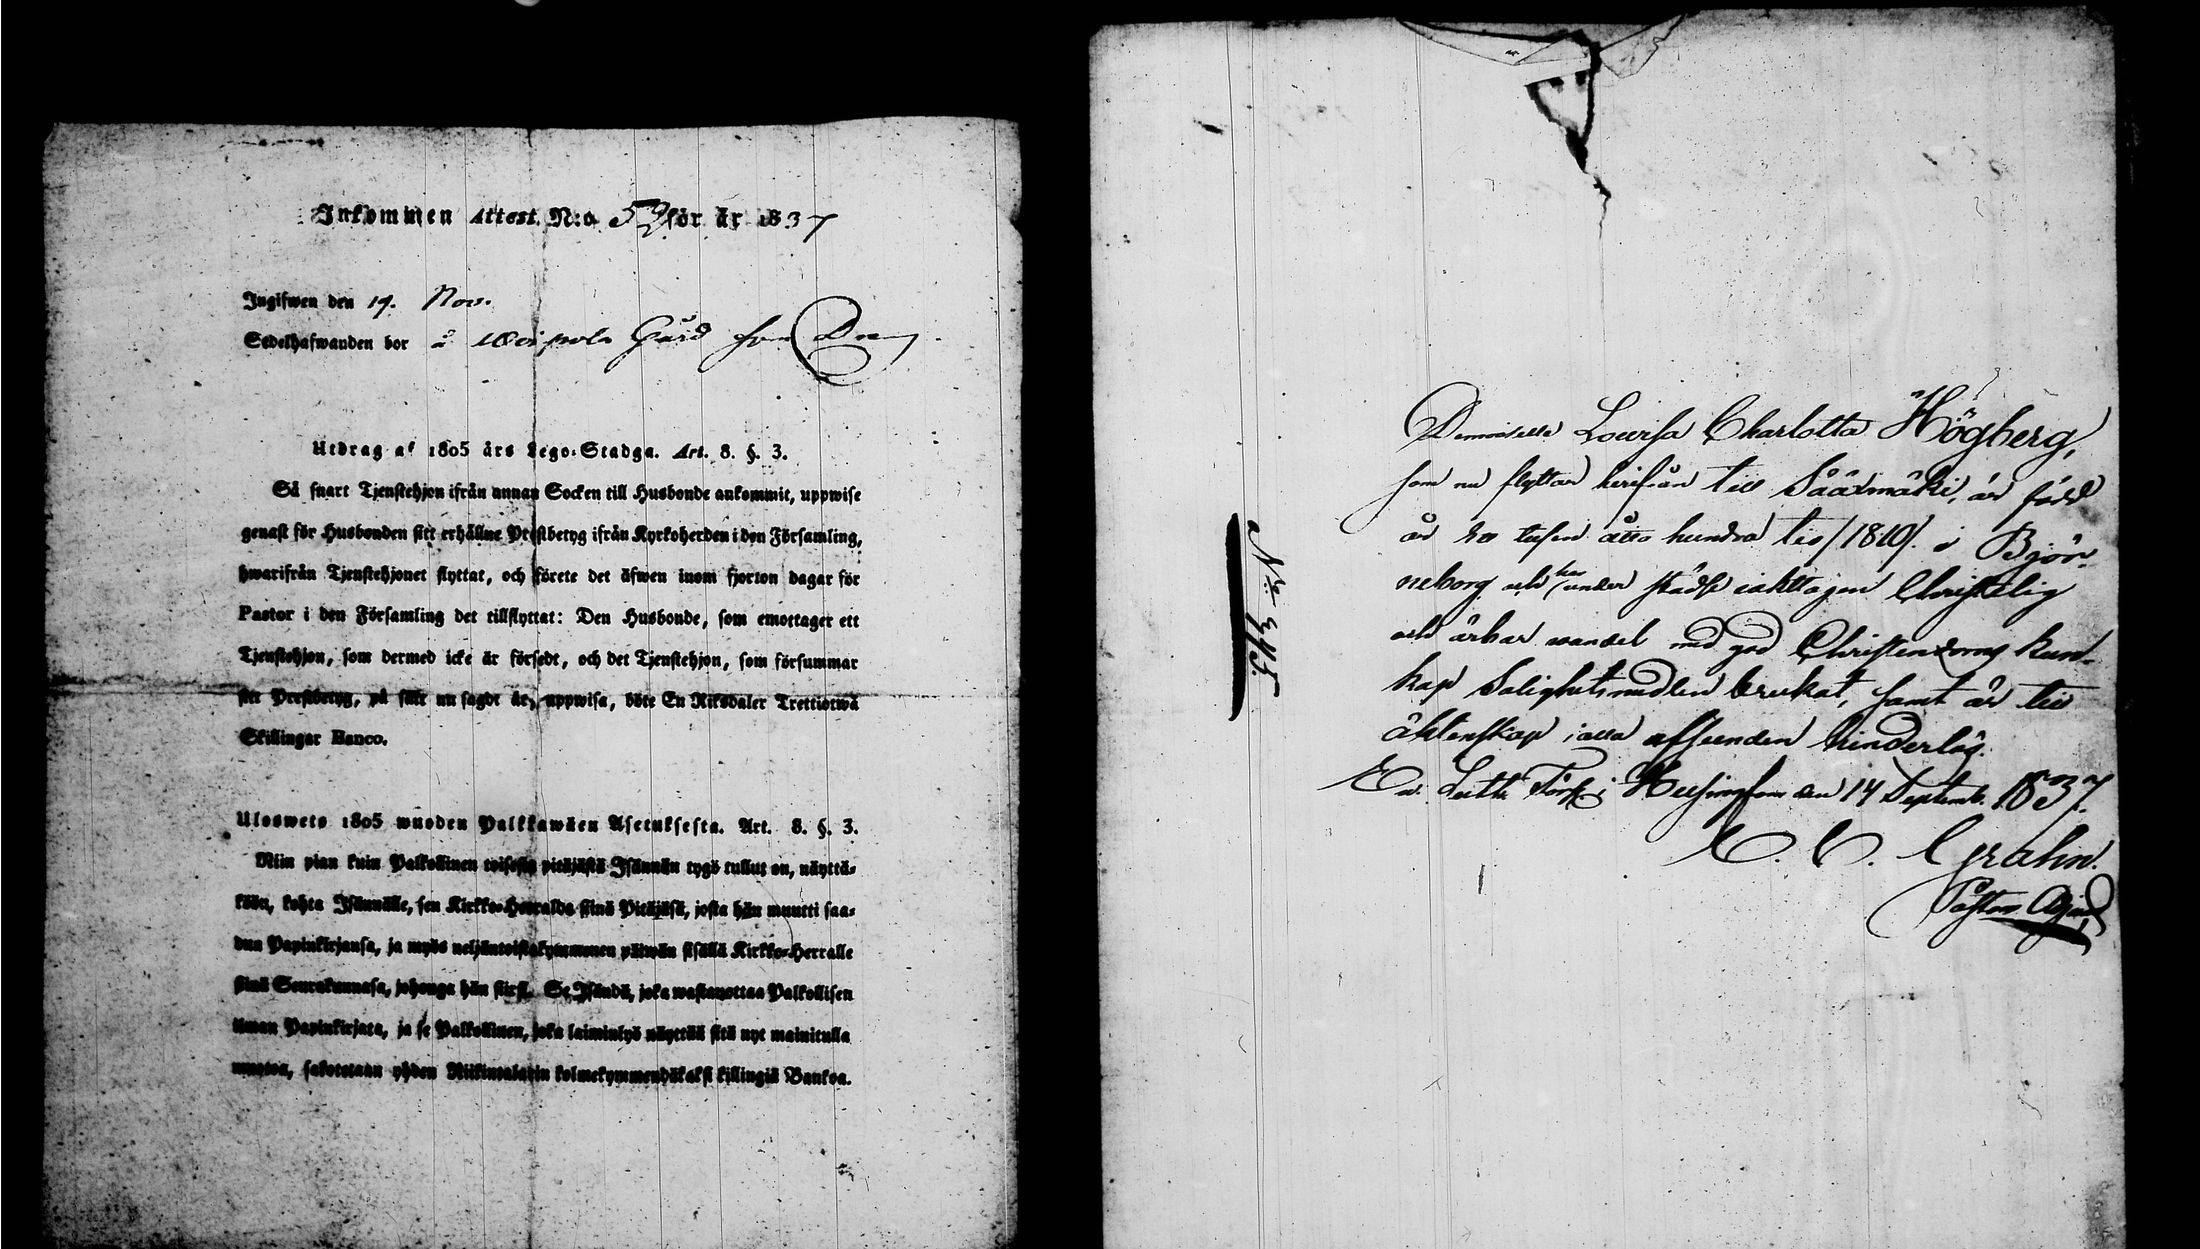 Inkommen Attest. N:o 53 för år 1837
Ingifwen den 19. Nov.
Sedelhafwanden bor å Woipola Gård
Utdrag af 1805 års Lego-Stadga. Art. 8. §. 3.
Så snart Tjenstehjon ifrån annan Socken till Husbonde ankommit, uppwise
genast för Husbonden sitt erhållne Prestbetyg ifrån Kyrkoherden i den Församling,
hwarifrån Tjenstehjonet flyttat, och förete det äfwen inom fjorton dagar för
Pastor i den Församling det tillflyttat: Den Husbonde, som emottager ett
Tjenstehjon, som dermed icke är försedt, och det Tjenstehjon, som försummar
sitt Prestbetyg, på sätt nu sagdt är, uppwisa, böte En Riksdaler Trettiotwå
Skillingar Banco.
Ulosweto 1805 wuoden Palkkawäen Asetuksesta. Art. 8. §. 3.
Niin pian kuin Palkollinen toisesta pitäjästä Isännän tygö tullut on, näyttä-
köön, kohta Isännälle, sen Kirkko-Herralda siinä Pitäjäsä, josta hän muutti saa-
dun Papinkirjansa, ja myös neljäntoistakymmenen päiwän sisällä Kirkko-Herralle
siinä Seurakunnasa, johonga hän siirsi. Se Isändä, joka wastanottaa Palkollisen
ilman Papinkirjata, ja se Palkollinen, joka laiminlyö näyttää sitä nyt mainitulla
muotoa, sakotetaan yhden Riikintalarin kolmekymmendäkaksi killingiä Bankoa.
N:o 345.
Demoiselle Lovisa Charlotta Högberg,
som nu flyttar härifrån till Sääxmäki, är född
år Ett tusen åtta hundra tio /1810/. i Björ-
neborg och har under städse iakttagen Christelig
och ärbar wandel med god Christendoms kun-
kap Salighetsmedlen brukat, samt är till
äktenskap i alla afseenden hinderlös.
Ev. Luth. Förs. i Helsingfors den 14 Septemb. 1837.
C. C. Grahn.
Pastors Adjunct